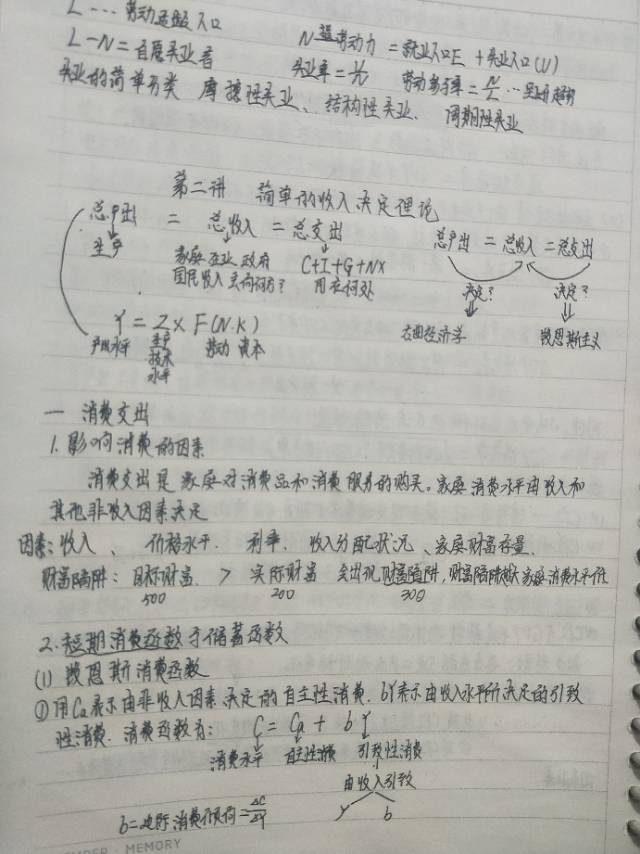 L ... 劳动适龄人口
L-N=自愿失业者 N 劳动力 =就业人口E +失业人口(U)
失业率=U/N 劳动参与率=N/L
失业的简单分类 摩擦性失业、结构性失业、周期性失业
第二讲 简单的收入决定理论
总产出 = 总收入 = 总支出 总产出 =总收入 =总支出
生产 家庭 企业 政府 C+I+G+NX
国民收入 流向何方? 用在何处 决定? 决定?
Y = Z × F(N.K) 古典经济学 凯恩斯主义
产出水平 生产 劳动 资本
技术
水平
一 消费支出
1.影响消费的因素
消费支出是家庭对消费品和消费服务的购买。家庭消费水平由收入和
其他非收入因素决定
因素:收入、价格水平.利率.收入分配状况、家庭财富存量.
财富陷阱:目标财富 > 实际财富 会出现财富陷阱,财富陷阱越大家庭消费水平低
500 200 300
2.短期消费函数与储蓄函数
(1) 凯恩斯消费函数
①用Ca表示由非收入因素决定的自主性消费.bY表示由收入水平所决定的引致
性消费.消费函数为: C = Ca + bY
消费水平 自主性消费 引致性消费
由收入引致
Y b
b=边际消费倾向=ΔC/ΔY
MEMBER · MEMORY